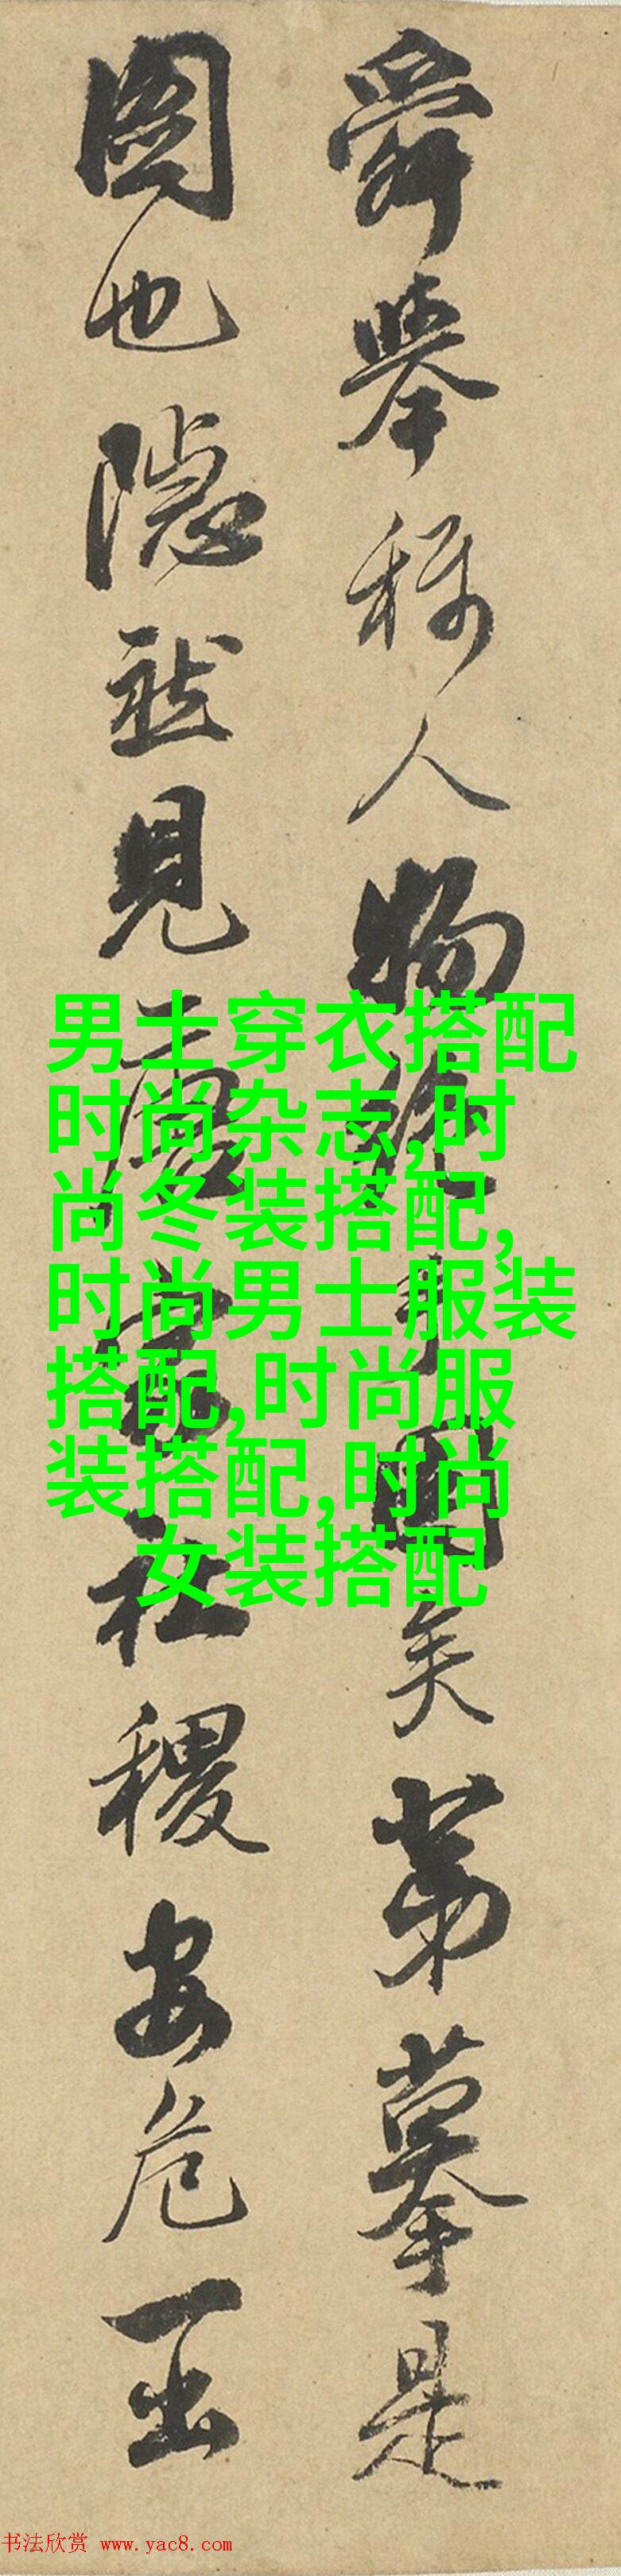 舜舉稱人物於中國矣第摹是
圖也隱然見唐家社稷安危一出
男士穿衣搭配
时尚杂志,时
尚冬装搭配,
时尚男士服装
搭配,时尚服
装搭配,时尚
女装搭配
书法欣赏 www.yac8.com